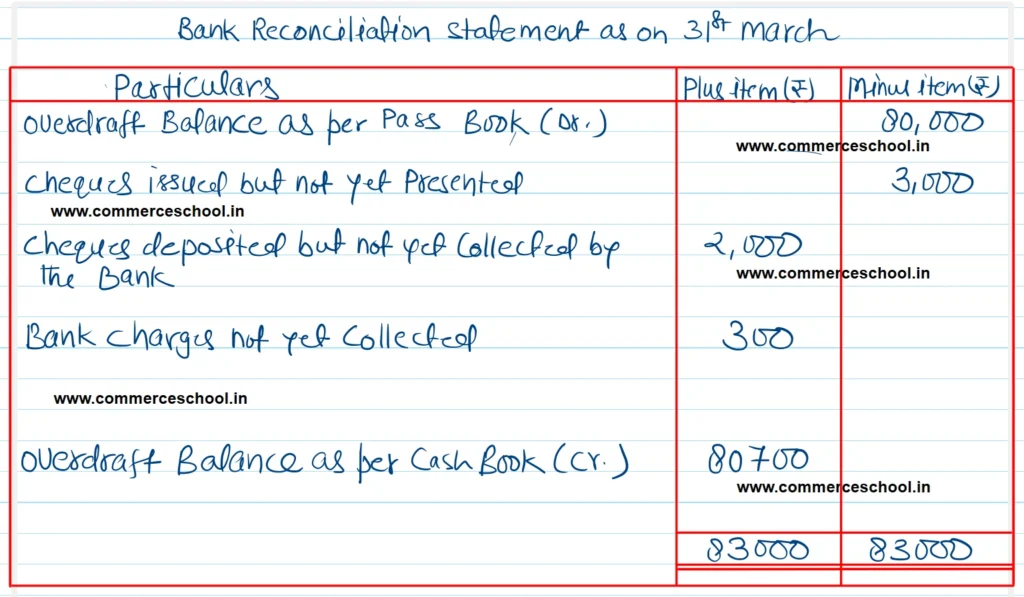 Bank Reconciliation Statement as on 31st March
Particulars Plus item (₹) Minus item (₹)
Overdraft Balance as per Pass Book (Dr.) 80,000
www.commerceschool.in
Cheques issued but not yet Presented 3,000
www.commerceschool.in
Cheques deposited but not yet Collected by 2,000
the Bank www.commerceschool.in
Bank charges not yet Collected 300
www.commerceschool.in
Overdraft Balance as per Cash Book (Cr.) 80700
www.commerceschool.in
83000 83000